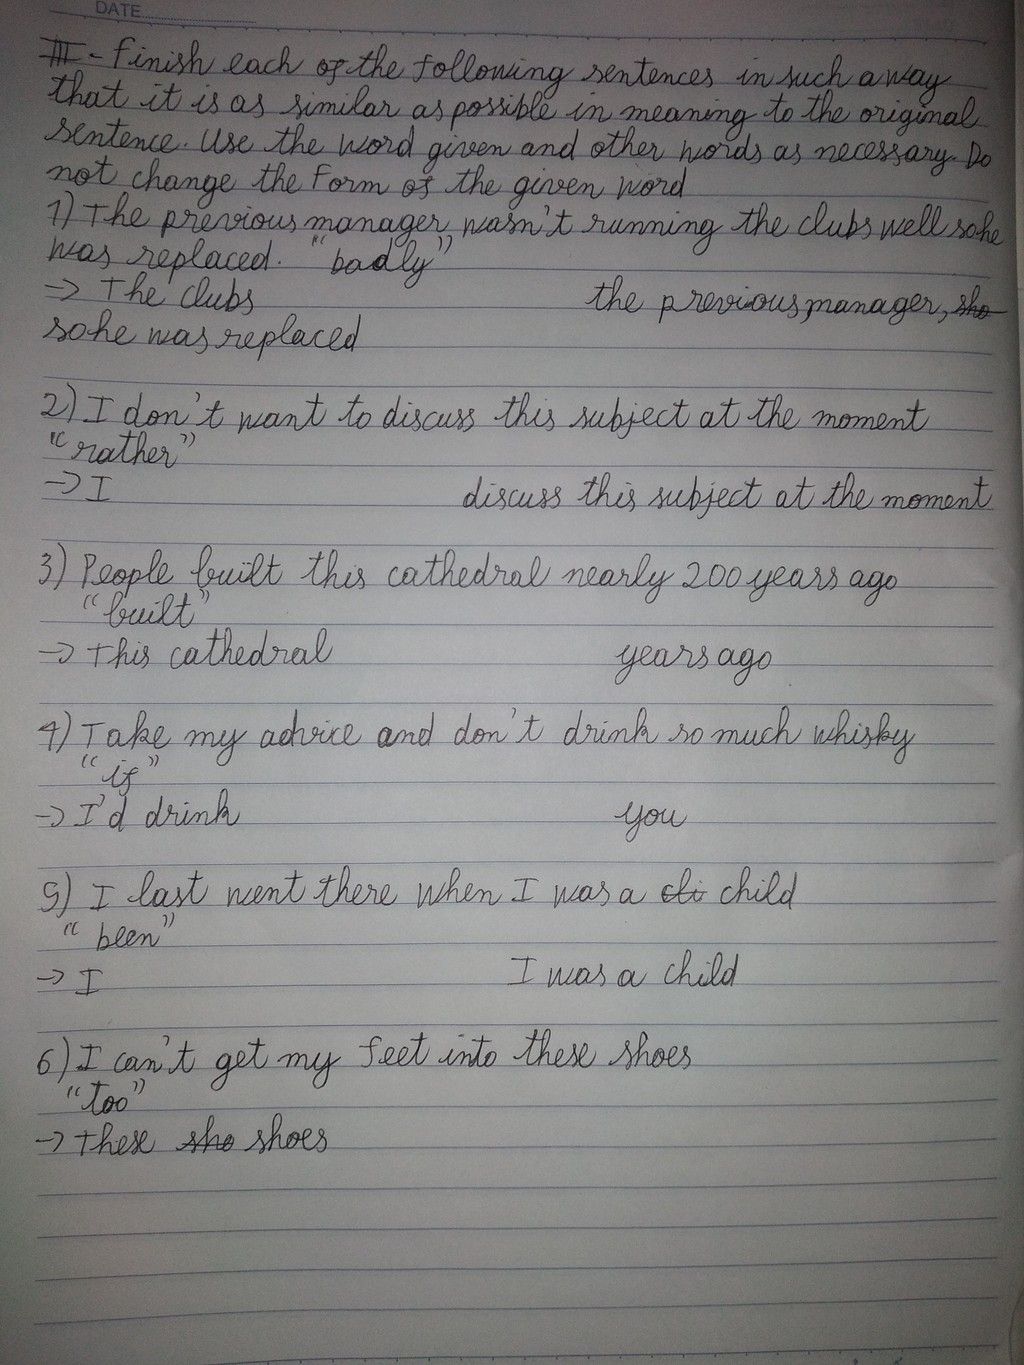 DATE
III - Finish each of the following sentences in such a way
that it is as similar as possible in meaning to the original
sentence. Use the word given and other words as necessary. Do
not change the form of the given word
1) The previous manager wasn't running the clubs well so he
was replaced. "badly"
→ The clubs the previous manager, sho
so he was replaced
2) I don't want to discuss this subject at the moment
"rather"
→ I discuss this subject at the moment
3) People built this cathedral nearly 200 years ago
"built"
→ This cathedral years ago
4) Take my advice and don't drink so much whisky
"if"
→ I'd drink you
5) I last went there when I was a cli child
"been"
→ I I was a child
6) I can't get my feet into these shoes
"too"
→ These sho shoes